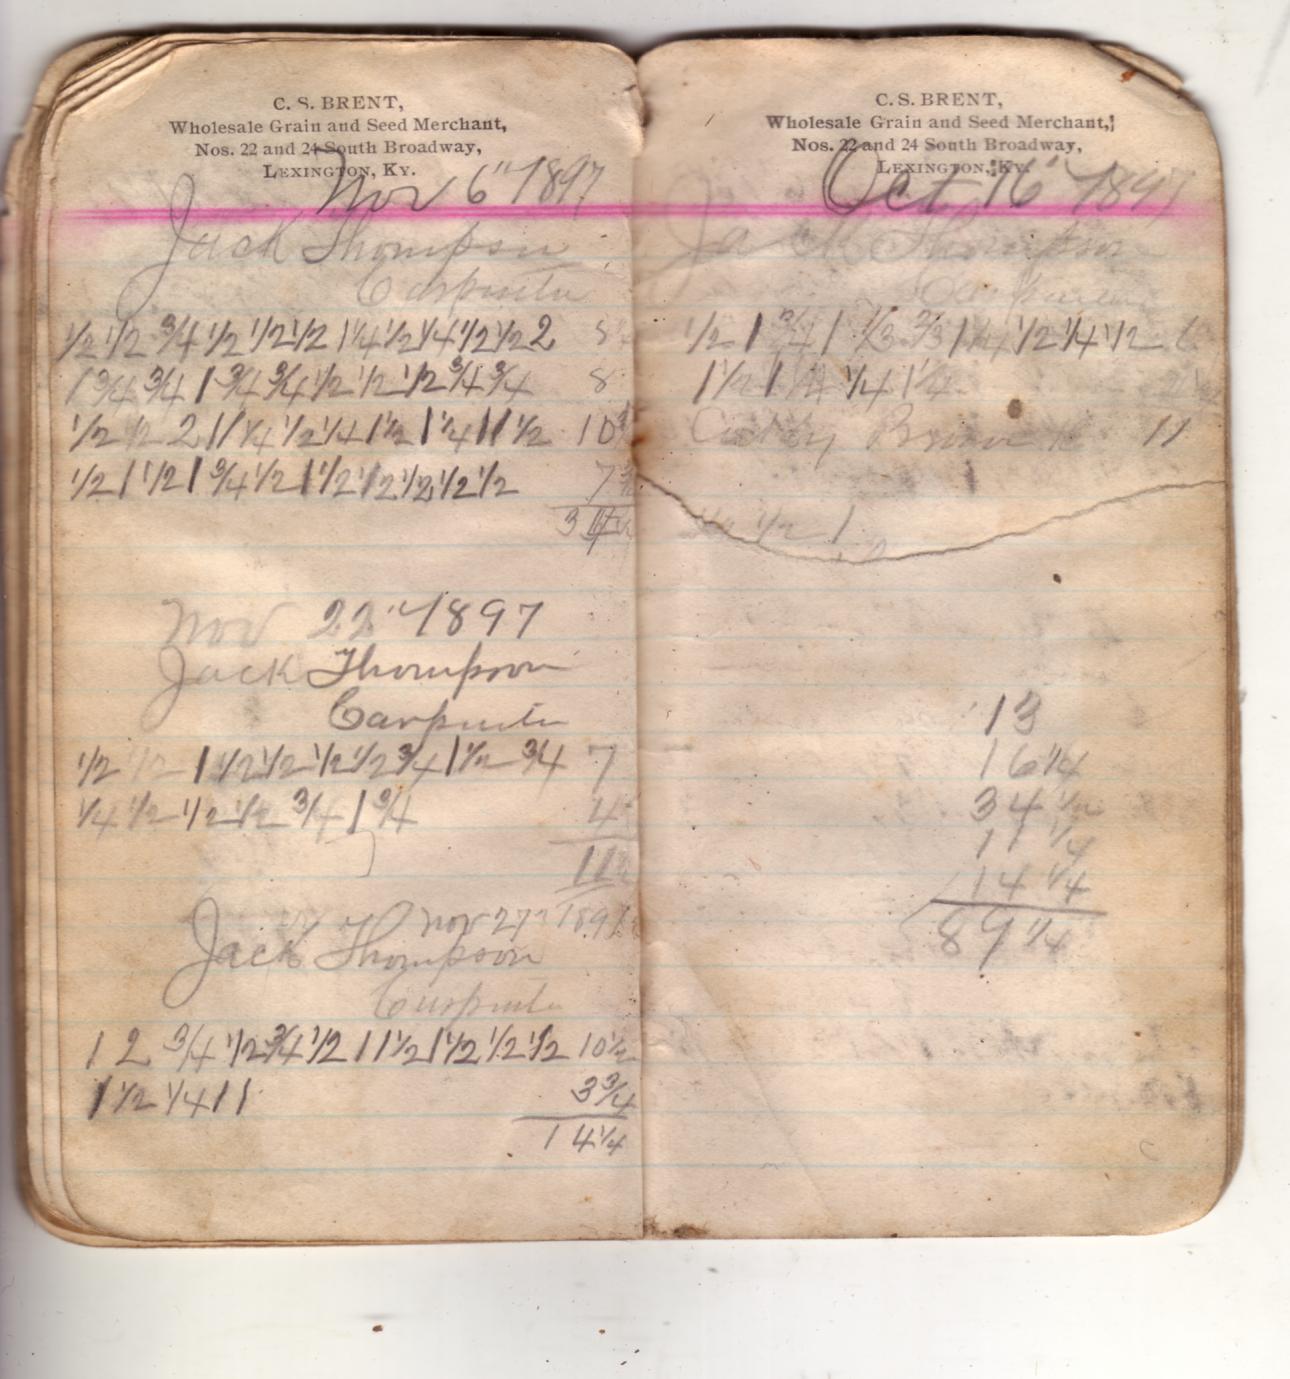 C. S. BRENT,
Wholesale Grain and Seed Merchant,
Nos. 22 and 24 South Broadway,
LEXINGTON, KY.
Nov 6" 1897
Jack Thompson
Carpenter
1/2 1/2 3/4 1/2 1/2 1/2 1 1/4 1/2 1/4 1/2 1/2 2 8
1 3/4 3/4 1 3/4 3/4 1/2 1/2 1/2 3/4 3/4 8
1/2 1/2 2 1 1 1/4 1/2 1/4 1 1/2 1 1/4 1 1 1/2 10
1/2 1 1/2 1 3/4 1/2 1 1/2 1/2 1/2 1/2 1/2 7
34 1/2
Nov 22" 1897
Jack Thompson
Carpenter
1/2 1/2 1 1/2 1/2 1/2 1/2 3/4 1 1/2 3/4 7
1/4 1/2 1/2 1/2 3/4 1 3/4 4
11
Nov 27 1897
Jack Thompson
Carpenter
1 2 3/4 1/2 3/4 1/2 1 1 1/2 1 1/2 1/2 1/2 10 1/2
1 1/2 1/4 1 1 3 3/4
14 1/4
C. S. BRENT,
Wholesale Grain and Seed Merchant,
Nos. 22 and 24 South Broadway,
LEXINGTON, KY.
Oct 16" 1897
Jack Thompson
Carpenter
1/2 1 3/4 1 1/3 2/3 1 1/4 1/2 1/4 1/2 6
1 1/2 1 1/4 1/4 1 1/4
Brown 11
1/2 1
13
16 1/4
34 1/2
11 1/4
14 1/4
89 1/4